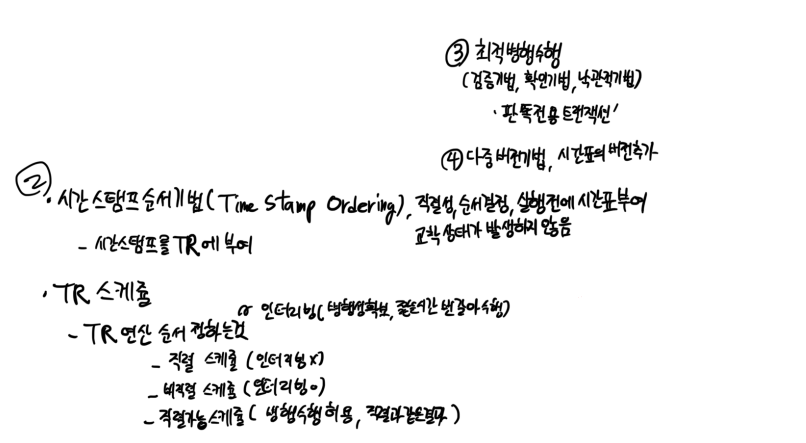 ③ 최적병행수행
(검증기법, 확인기법, 낙관적기법)
· 판독전용 트랜잭션'
④ 다중버전기법, 시간표의 버전추가
②
· 시간 스탬프 순서기법 (Time Stamp Ordering), 직렬성, 순서결정, 실행전에 시간표부여
교착상태가 발생하지 않음
- 시간스탬프를 TR에 부여
· TR 스케줄
인터리빙 (병행성확보, 짧은시간 번갈아수행)
- TR 연산 순서 정하는것
- 직렬 스케줄 (인터리빙 X)
- 비직렬 스케줄 (인터리빙 o)
- 직렬가능스케줄 ( 병행수행 허용, 직렬과 같은결과 )